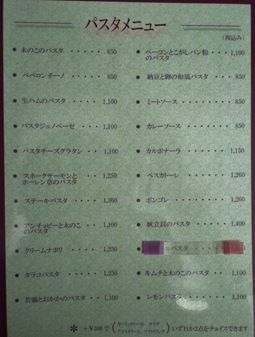 パスタメニュー
(税込み)
木のこのパスタ ・・・・・ 850
ペペロンチーノ ・・・・ 850
生ハムのパスタ ・・・・ 1,100
パスタジェノベーゼ ・・・ 1,100
パスタチーズグラタン ・・ 1,100
スモークサーモンと
ホーレン草のパスタ ・・・ 1,250
ステーキパスタ ・・・・ 1,350
アンチョビーと木のこの
パスタ ・・・・ 1,100
クリームナポリ ・・・・ 1,250
タラコパスタ ・・・・ 1,250
若鶏とおかかのパスタ ・・ 1,100
ベーコンとこがしパン粉
のパスタ ・・・・ 1,100
納豆と卵の和風パスタ ・・・ 850
ミートソース ・・・・ 850
カレーソース ・・・・ 850
カルボナーラ ・・・・ 1,150
ペスカトーレ ・・・・ 1,260
ボンゴレ ・・・・ 1,260
帆立貝のパスタ ・・・・ 1,400
パスタ
キムチと木のこのパスタ ・・ 1,100
レモンパスタ ・・・・ 1,100
いずれか2点をチョイスできます